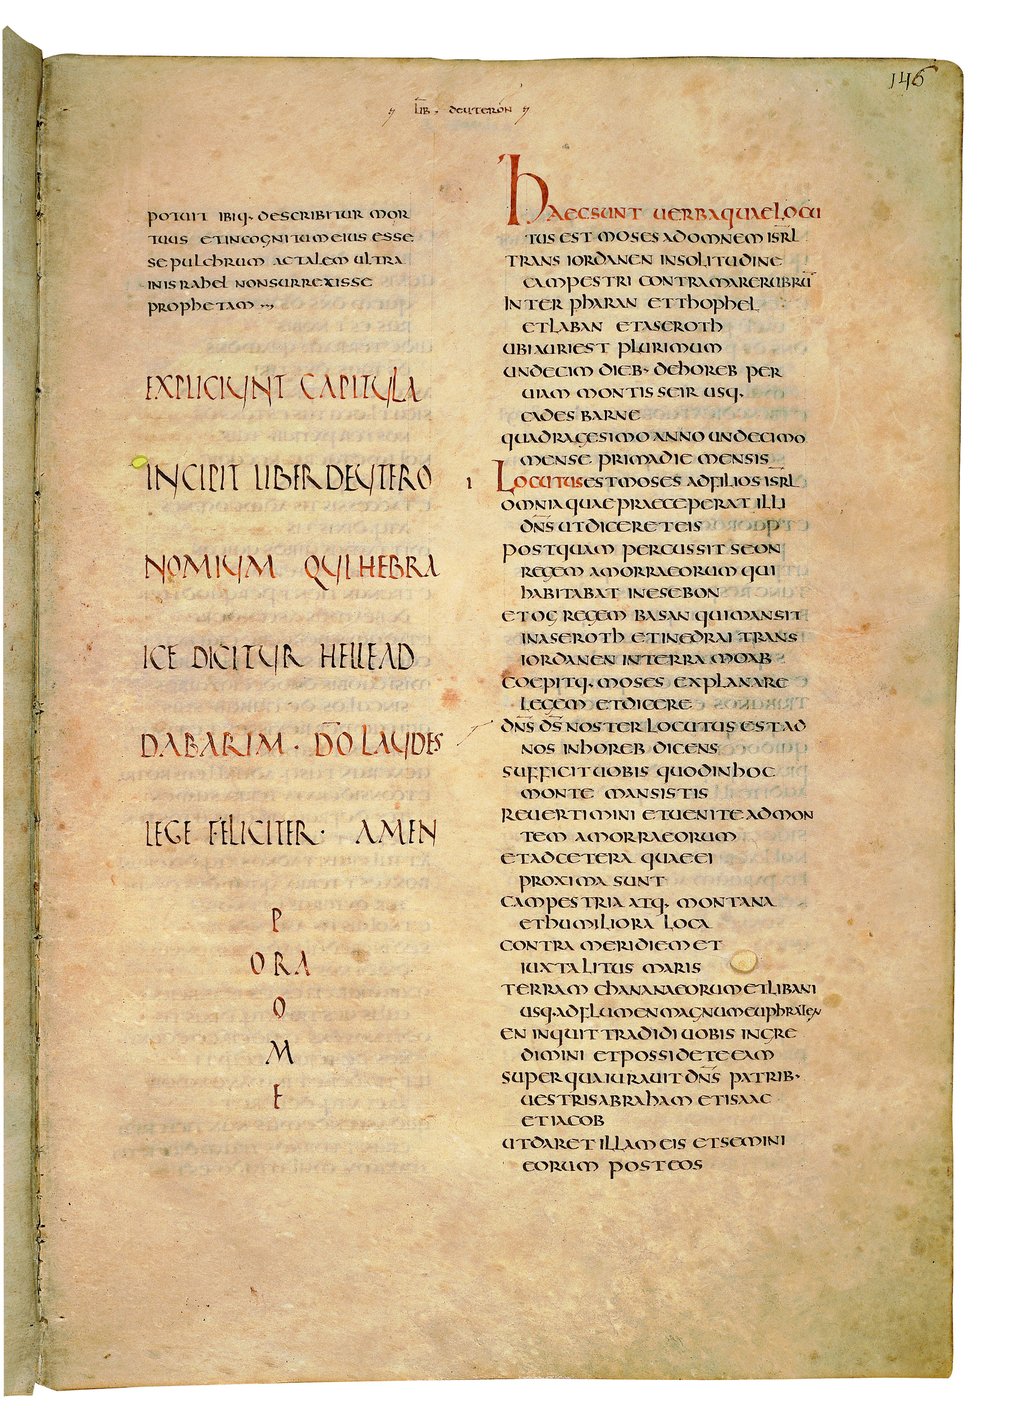 146
LIB · DEUTERON
POTUIT IBIQ· DESCRIBITUR MOR
TUUS ETINCOGNITUM EIUS ESSE
SEPULCHRUM AC TALEM ULTRA
IN ISRAHEL NON SURREXISSE
PROPHETAM
EXPLICIUNT CAPITULA
INCIPIT LIBER DEUTERO
NOMIUM QUI HEBRA
ICE DICITUR HELLEAD
DABARIM · D̅O LAUDES
LEGE FELICITER · AMEN
P
ORA
O
M
E
HAEC SUNT UERBA QUAE LOCU
TUS EST MOSES AD OMNEM ISR̅L
TRANS IORDANEN IN SOLITUDINE
CAMPESTRI CONTRA MARE RUBRU̅
INTER PHARAN ET THOPHEL
ET LABAN ET ASEROTH
UBI AURI EST PLURIMUM
UNDECIM DIEB· DE HOREB PER
UIAM MONTIS SEIR USQ·
CADES BARNE
QUADRAGESIMO ANNO UNDECIMO
MENSE PRIMA DIE MENSIS
I LOCUTUS EST MOSES AD FILIOS ISR̅L
OMNIA QUAE PRAECEPERAT ILLI
DN̅S UT DICERET EIS
POSTQUAM PERCUSSIT SEON
REGEM AMORRAEORUM QUI
HABITABAT IN ESEBON
ET OG REGEM BASAN QUI MANSIT
IN ASEROTH ET IN EDRAI TRANS
IORDANEN IN TERRA MOAB
COEPITQ· MOSES EXPLANARE
LEGEM ET DICERE
DN̅S D̅S NOSTER LOCUTUS EST AD
NOS IN HOREB DICENS
SUFFICIT UOBIS QUOD IN HOC
MONTE MANSISTIS
REUERTIMINI ET UENITE AD MON
TEM AMORRAEORUM
ET AD CETERA QUAE EI
PROXIMA SUNT
CAMPESTRIA ATQ· MONTANA
ET HUMILIORA LOCA
CONTRA MERIDIEM ET
IUXTA LITUS MARIS
TERRAM CHANANAEORUM ET LIBANI
USQ· AD FLUMEN MAGNUM EUPHRATEN
EN INQUIT TRADIDI UOBIS INGRE
DIMINI ET POSSIDETE EAM
SUPER QUA IURAUIT DN̅S PATRIB·
UESTRIS ABRAHAM ET ISAAC
ET IACOB
UT DARET ILLAM EIS ET SEMINI
EORUM POST EOS